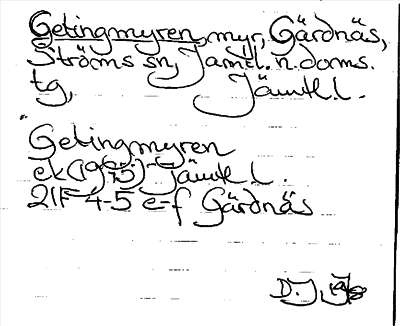 Getingmyren, myr, Gärdnäs,
Ströms sn, Jämtl. n. doms.
tg, Jämtl. l.
Getingmyren
ek (1965) Jämtl l.
21F 4-5 e-f Gärdnäs
D.J.